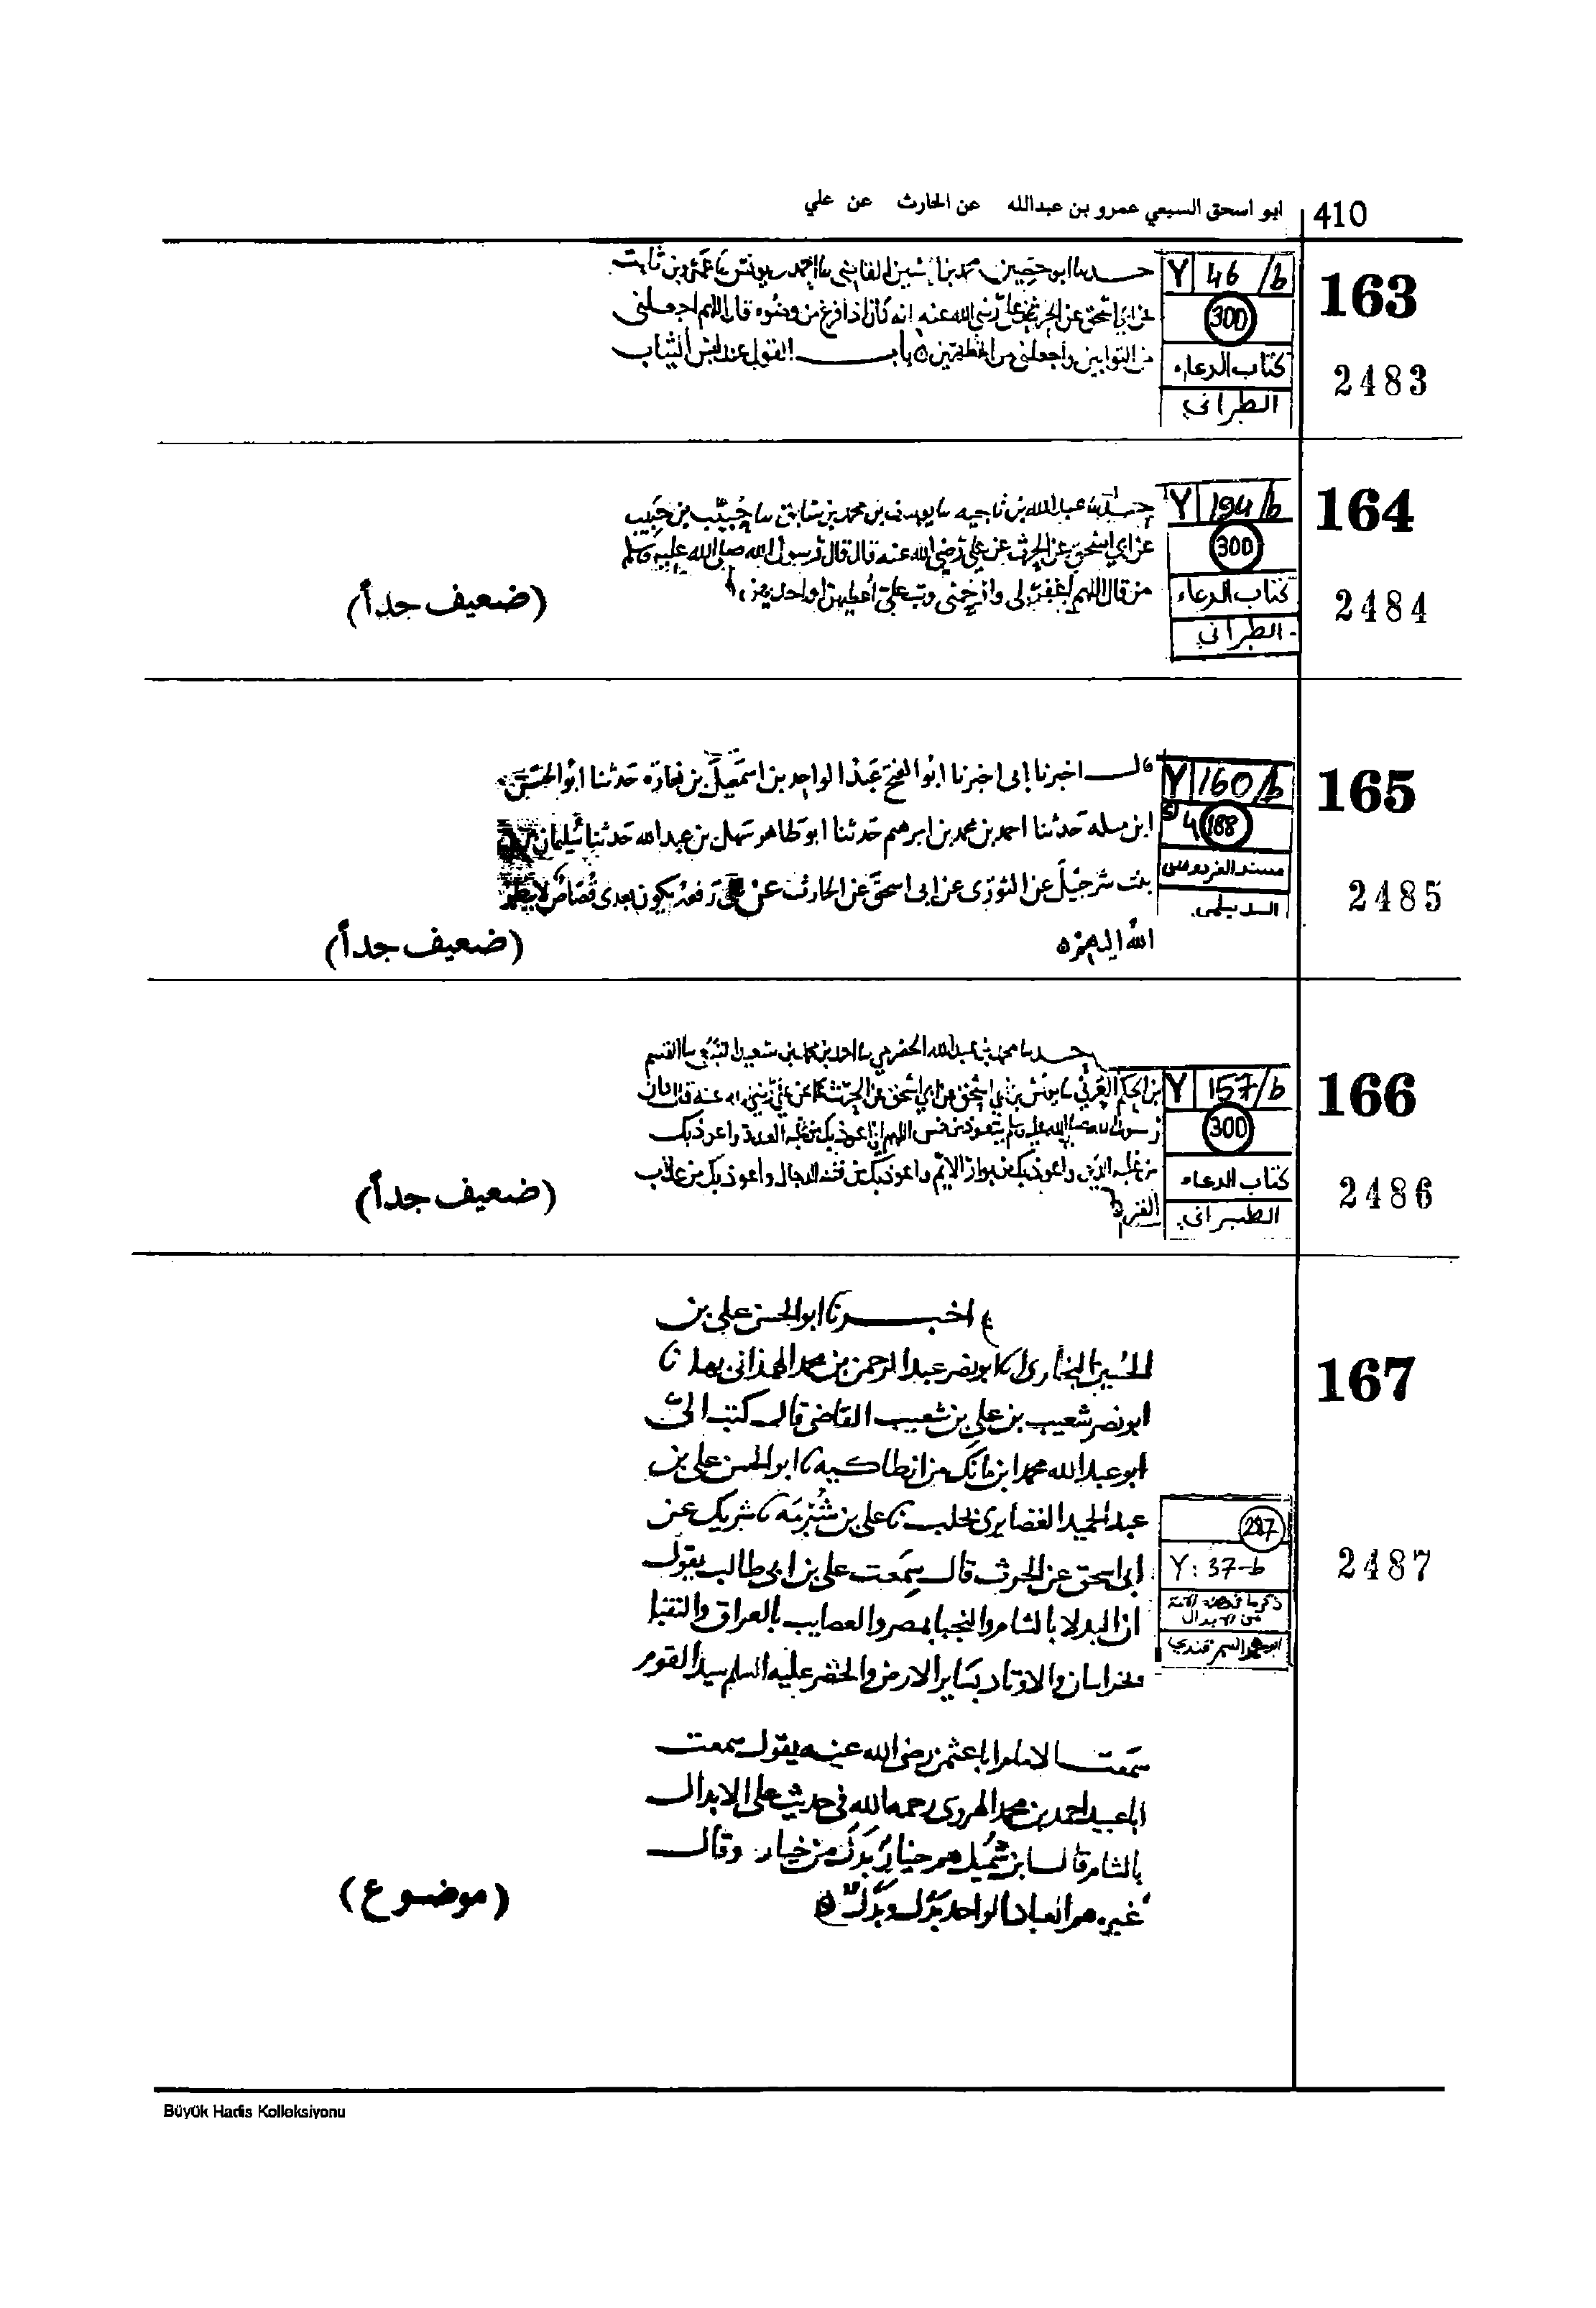 410 ابو اسحق السبعي عمرو بن عبدالله عن الحارث عن علي
163
Y 46/b
300
كتاب الدعاء
الطبراني
2483
حدثنا ابو حصين محمد بن الحسين القاضي ثنا احمد بن يونس ثنا عمرو بن ثابت
عن ابي اسحق عن الحرث عن علي رضي الله عنه انه كان اذا فرغ من وضوه قال اللهم اجعلني
من التوابين واجعلني من المتطهرين باب القول عند لبس الثياب
164
Y 194/b
300
كتاب الدعاء
الطبراني
2484
حدثنا عبد الله بن ناجيه ثنا يوسف بن محمد بن سابق ثنا حبيب بن حبيب
عن ابي اسحق عن الحرث عن علي رضي الله عنه قال قال رسول الله صلى الله عليه وسلم
من قال اللهم اغفر لي وارحمني وتب علي
(ضعيف جداً)
165
Y 160/b
4 188
مسند الفردوس
الديلمي
2485
قال اخبرنا ابي اخبرنا ابو الفتح عبد الواحد بن اسمعيل بن نغارة حدثنا ابو الحسن
ابن مسله حدثنا احمد بن محمد بن ابرهيم حدثنا ابو طاهر سهل بن عبد الله حدثنا سليمان
بنت شرحبيل عن الثوري عن ابي اسحق عن الحارث عن علي رفعه يكون بعدي قصاص لا ينظر
الله اليهم
(ضعيف جداً)
166
Y 157/b
300
كتاب الدعاء
الطبراني
2486
حدثنا محمد بن عبد الله الحضرمي ثنا احمد بن محمد بن ثنا القسم
بن الحكم العرني ثنا يونس بن ابي اسحق عن ابي اسحق عن الحرث عن علي رضي الله عنه قال كان
رسول الله صلى الله عليه وسلم يتعوذ من خمس اللهم اني اعوذ بك من غلبه العدو واعوذ بك
من غلبه الدين واعوذ بك من بوار الايم واعوذ بك من فتنه الدجال واعوذ بك من عذاب
القبر
(ضعيف جداً)
167
اخبرنا ابو الحسن علي بن
الحسين البخاري نا ابو نصر عبد الرحمن بن محمد الهمذاني بها نا
ابو نصر شعيب بن علي بن شعيب القاضي قال كتب الي
ابو عبد الله محمد ابن مانك من انطاكيه نا ابو الحسن علي بن
عبد الحميد الغضايري بحلب نا علي بن شبرمه نا شريك عن
ابي اسحق عن الحرث قال سمعت علي بن ابي طالب يقول
ان البدلا بالشام والنجبا بمصر والعصايب بالعراق والنقبا
بخراسان والاوتاد بساير الارض والخضر عليه السلم سيد القوم
287
Y: 37-b
من الابدال
السمرقندي
2487
سمعت الامام ابا عثمن رضي الله عنه يقول سمعت
ابا عبيد احمد بن محمد الهروي رحمه الله في حديث علي الابدال
بالشام قال ابن شميل هم خيار بدل من خيار وقال
غيره هم العباد الواحد بدل وبدل
(موضوع)
Büyük Hadis Kolleksiyonu